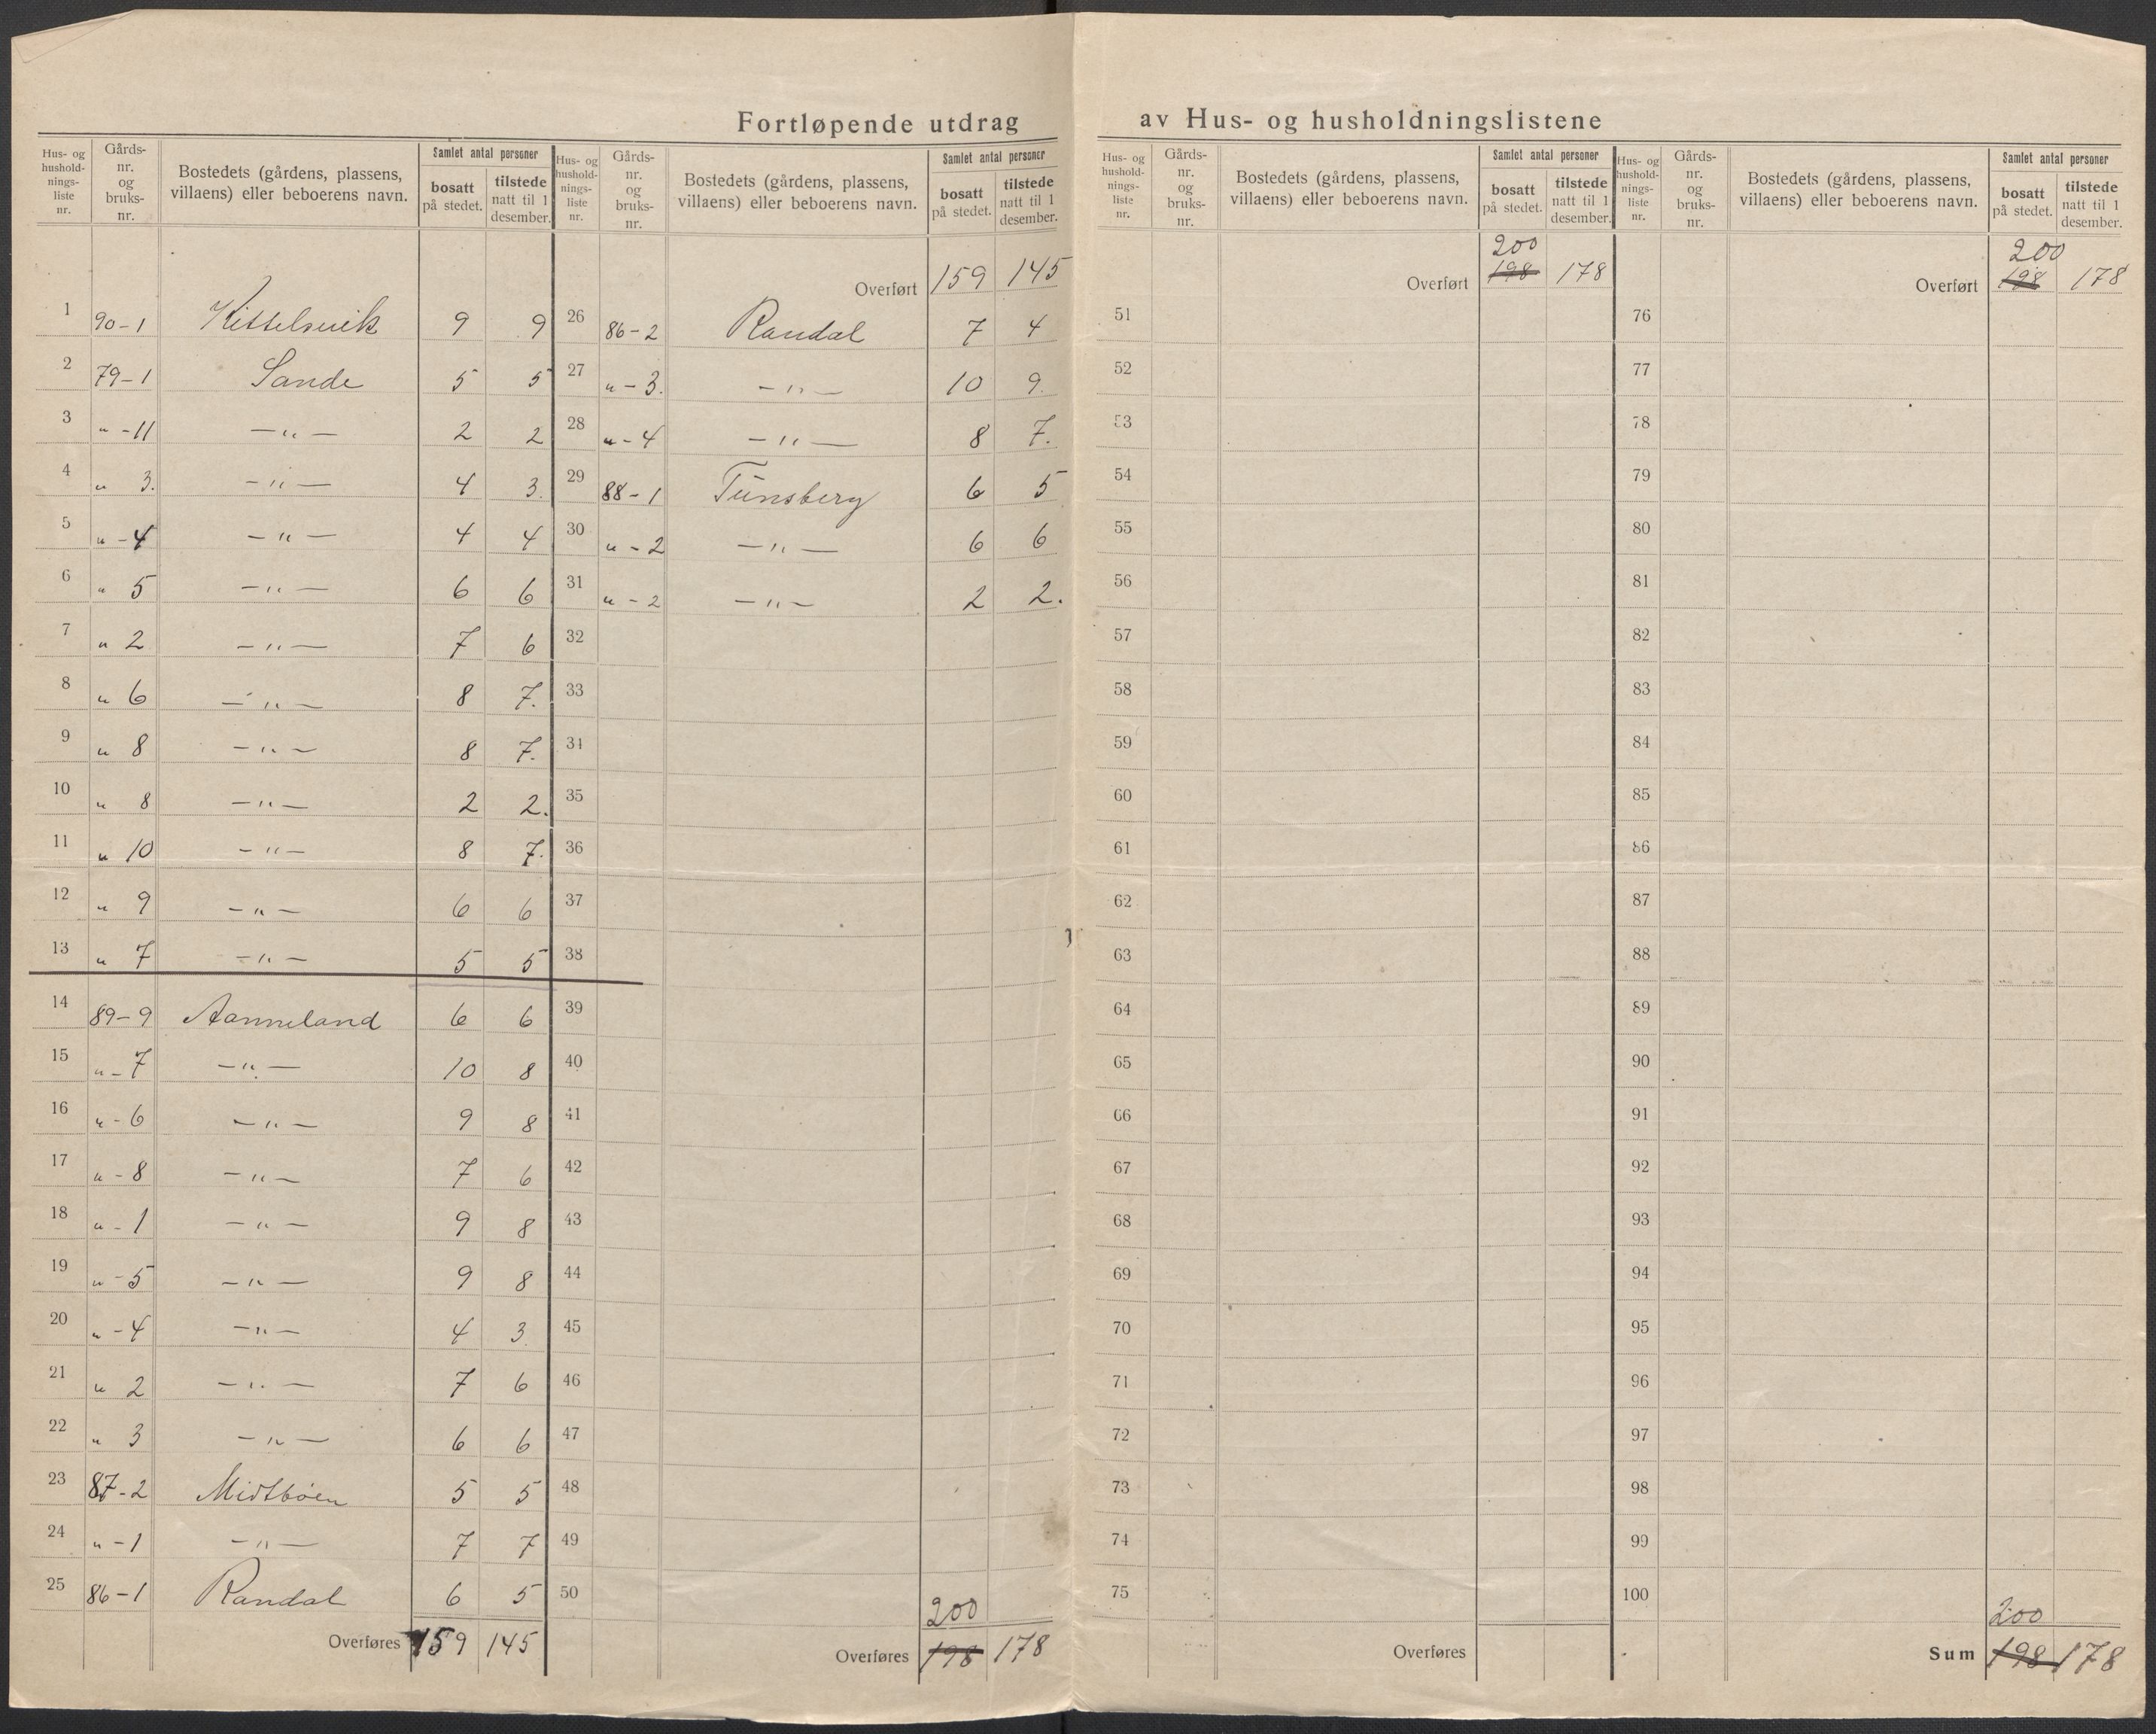 Fortløpende utdrag av Hus- og husholdningslistene
Hus- og hushold-nings-liste nr. Gårds-nr. og bruks-nr. Bostedets (gårdens, plassens, villaens) eller beboerens navn. Samlet antal personer bosatt på stedet. tilstede natt til 1 desember.
1 90-1 Kittelsvik 9 9
2 79-1 Sande 5 5
3 " -11 — " — 2 2
4 " 3. — " — 4 3.
5 " -4 — " — 4 4
6 " 5 — " — 6 6
7 " 2 — " — 7 6
8 " 6 — " — 8 7.
9 " 8 — " — 8 7.
10 " 8 — " — 2 2.
11 " 10 — " — 8 7.
12 " 9 — " — 6 6
13 " 7 — " — 5 5
14 89-9 Aanneland 6 6
15 " -7 — " — 10 8
16 " -6 — " — 9 8
17 " -8 — " — 7 6
18 " -1 — " — 9 8
19 " -5 — " — 9 8
20 " -4 — " — 4 3
21 " 2 — " — 7 6
22 " 3 — " — 6 6
23 87-2 Midtbøen 5 5
24 " -1 — " — 7 7
25 86-1 Randal 6 5
Overføres 159 145
Hus- og hushold-nings-liste nr. Gårds-nr. og bruks-nr. Bostedets (gårdens, plassens, villaens) eller beboerens navn. Samlet antal personer bosatt på stedet. tilstede natt til 1 desember.
Overført 159 145
26 86-2 Randal 7 4
27 " -3. — " — 10 9.
28 " -4 — " — 8 7.
29 88-1 Tunsberg 6 5
30 " -2 — " — 6 6
31 " -2 — " — 2 2.
32
33
34
35
36
37
38
39
40
41
42
43
44
45
46
47
48
49
50
200
Overføres 198 178
Hus- og hushold-nings-liste nr. Gårds-nr. og bruks-nr. Bostedets (gårdens, plassens, villaens) eller beboerens navn. Samlet antal personer bosatt på stedet. tilstede natt til 1 desember.
200
Overført 198 178
51
52
53
54
55
56
57
58
59
60
61
62
63
64
65
66
67
68
69
70
71
72
73
74
75
Overføres
Hus- og hushold-nings-liste nr. Gårds-nr. og bruks-nr. Bostedets (gårdens, plassens, villaens) eller beboerens navn. Samlet antal personer bosatt på stedet. tilstede natt til 1 desember.
200
Overført 198 178
76
77
78
79
80
81
82
83
84
85
86
87
88
89
90
91
92
93
94
95
96
97
98
99
100
200
Sum 198 178